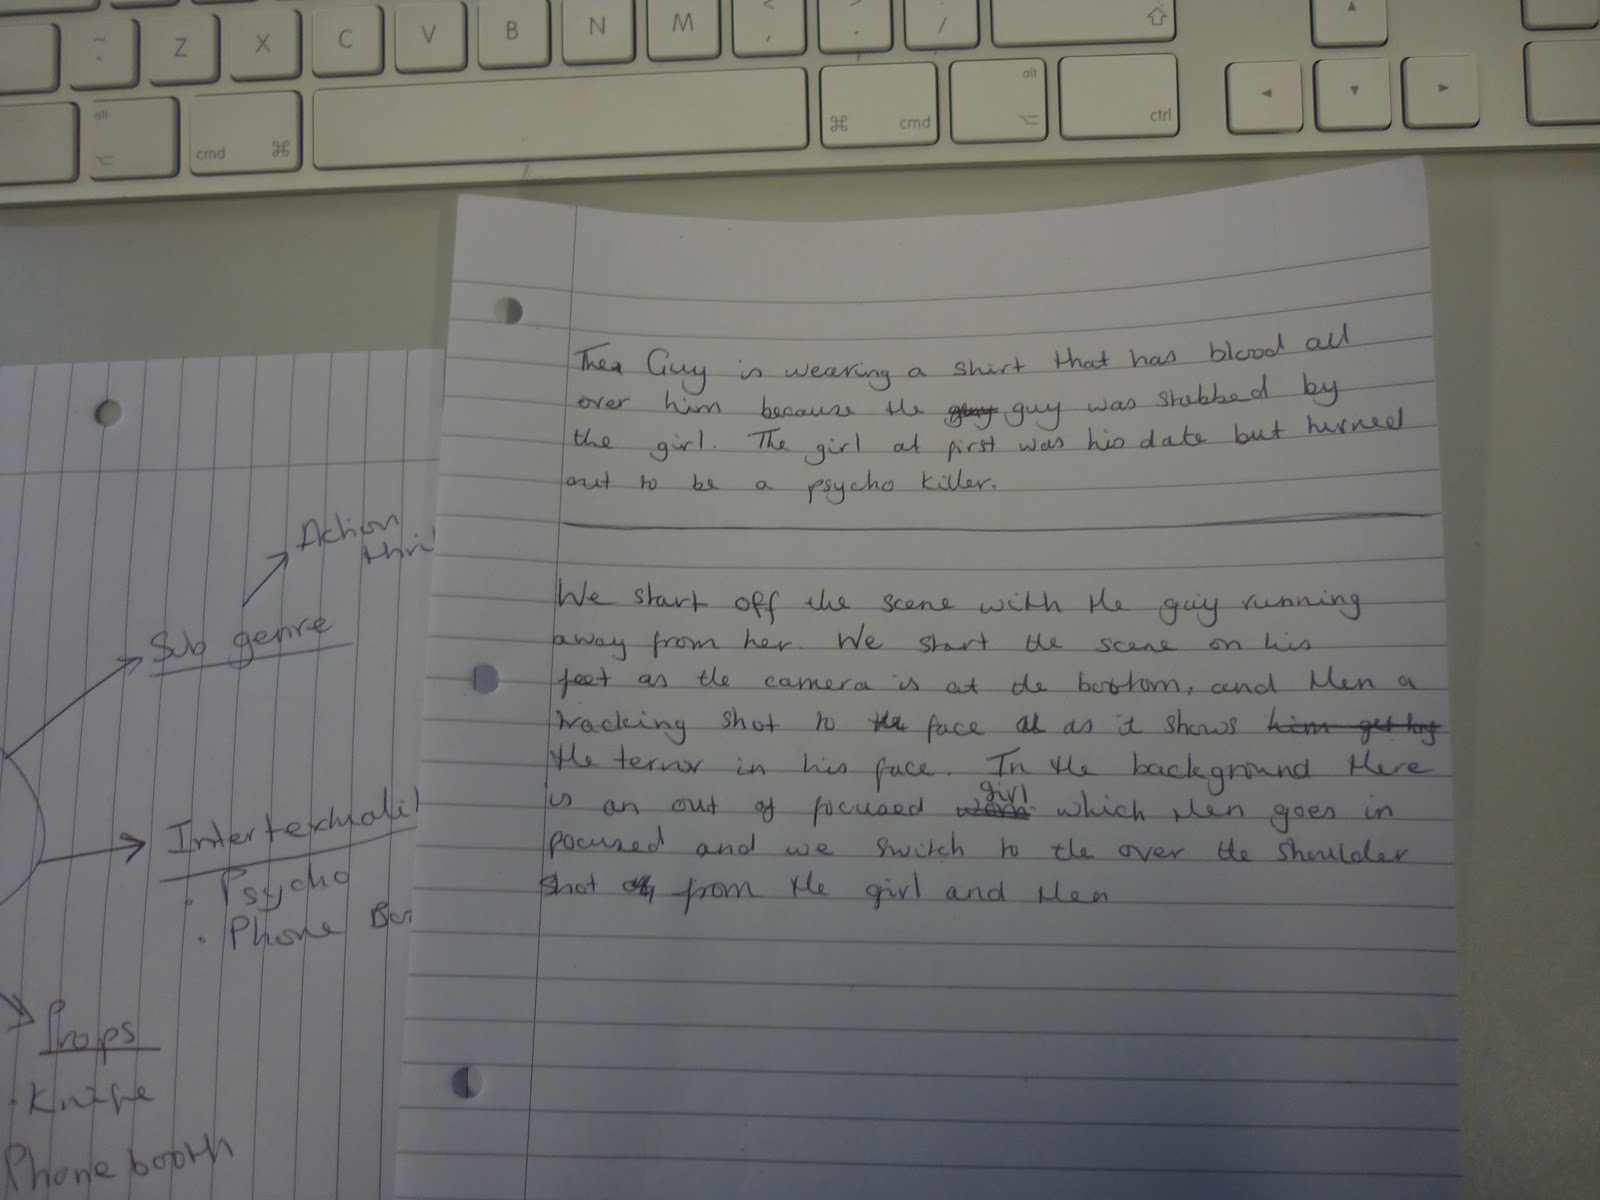 ~
Z
X
C
V
B
N
M
<
,
>
.
/
alt
cmd
⌘
⌘
cmd
alt
ctrl
The Guy is wearing a shirt that has blood all
over him because the guy guy was stabbed by
the girl. The girl at first was his date but turned
out to be a psycho killer.
We start off the scene with the guy running
away from her. We start the scene on his
feet as the camera is at the bottom, and then a
tracking shot to the face as it shows him get
the terror in his face. In the background there
is an out of focused girl which then goes in
focused and we switch to the over the shoulder
shot from the girl and then
Action
thri
Sub genre
Intertextuali
. Psycho
. Phone Bo
Props
. Knife
Phone booth